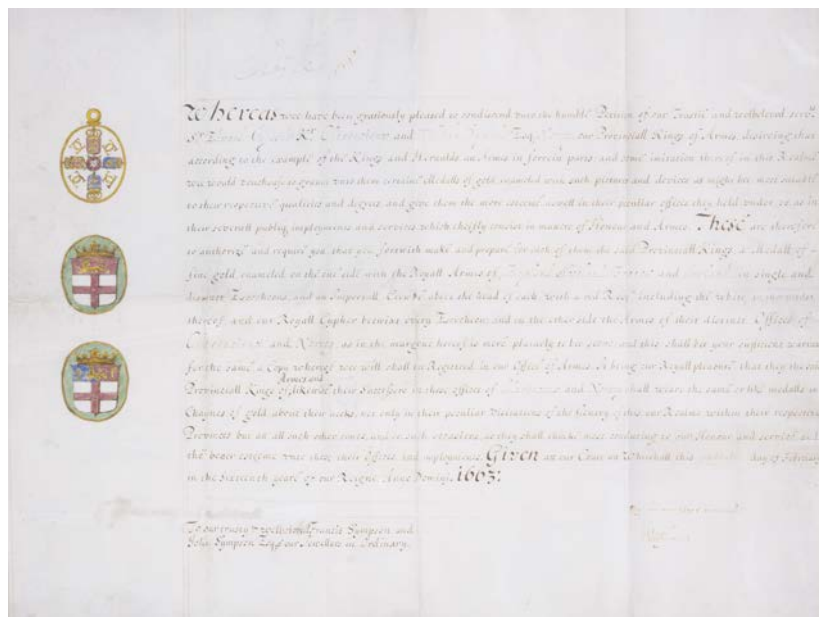 Whereas wee have been graciously pleased to condiscend unto the humble Peticion of our Trustie and welbeloved serv.ts
S.r Edward K.t Clarenceux and William Esq. Norroy our Provinciall Kings of Armes, desireing that
according to the example of the Kings and Heraulds in Armes in forrein parts and some imitation thereof in this Realme
wee would vouchsafe to graunt unto them certaine Medalls of gold enameled with such pictures and devices as might bee most suitable
to their respective qualities and degrees and give them the more esteeme aswell in their peculiar offices they hold under us as in
their severall publiq imployments and services which cheifly consist in matters of Honour and Armes. These are therefore
to authorize and require you, that you forthwith make and prepare for each of them the said Provinciall Kings, a Medall of
fine gold, enameled on the one side with the Royall Armes of and in single and
distinct Escocheons, and an Imperiall Crowne above the head of each with a red Rose including the white in the center
thereof and our Royall Cypher betwixt every Escocheon; and on the other side the Armes of their distinct Offices of
Clarenceux and Norroy as in the margine hereof is more plainely to be seene; and this shall bee your sufficient warrant
for the same a Copy whereof wee will shall be Registred in our Office of Armes. It being our Royall pleasure that they the said
Provinciall Kings of Armes and likewise their Successors in these offices of Clarenceux and Norroy shall weare the same or like medalls in
Chaynes of gold about their necks, not only in their peculiar Visitations of the Gentry of this our Realme within their respective
Provinces but att all such other times, and in such occasions as they shall thinke most conducing to our Honour and service and
the better esteeme unto them their Offices and imployments. Given att our Court att Whitehall this day of February
in the sixteenth yeare of our Reigne Anno Domini. 1663.
To our trusty & welbeloved Francis Sympson and
John Sympson Esq.rs our Jewellers in Ordinary.